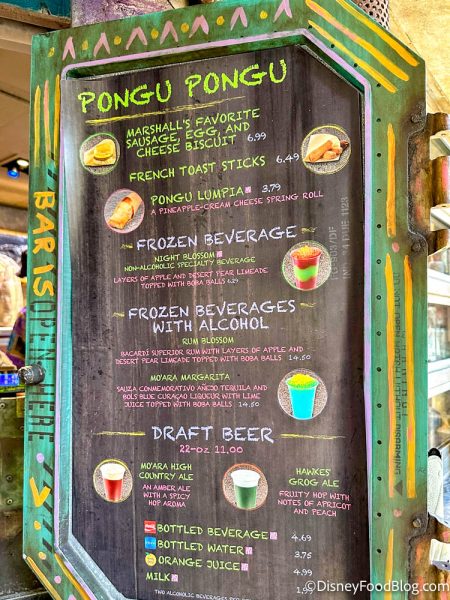 PONGU PONGU
MARSHALL'S FAVORITE
SAUSAGE, EGG, AND
CHEESE BISCUIT 6.99
FRENCH TOAST STICKS 6.49
PONGU LUMPIA 3.79
A PINEAPPLE-CREAM CHEESE SPRING ROLL
FROZEN BEVERAGE
NIGHT BLOSSOM
NON-ALCOHOLIC SPECIALTY BEVERAGE
LAYERS OF APPLE AND DESERT PEAR LIMEADE
TOPPED WITH BOBA BALLS 6.29
FROZEN BEVERAGES
WITH ALCOHOL
RUM BLOSSOM
BACARDI SUPERIOR RUM WITH LAYERS OF APPLE AND
DESERT PEAR LIMEADE TOPPED WITH BOBA BALLS 14.50
MO'ARA MARGARITA
SAUZA CONMEMORATIVO AÑEJO TEQUILA AND
BOLS BLUE CURAÇAO LIQUEUR WITH LIME
JUICE TOPPED WITH BOBA BALLS 14.50
DRAFT BEER
22-OZ 11.00
MO'ARA HIGH
COUNTRY ALE
AN AMBER ALE
WITH A SPICY
HOP AROMA
HAWKES'
GROG ALE
FRUITY HOP WITH
NOTES OF APRICOT
AND PEACH
BOTTLED BEVERAGE 4.69
BOTTLED WATER 3.75
ORANGE JUICE 4.99
MILK 1.99
TWO ALCOHOLIC BEVERAGES PER
BAR IS OPEN HERE
©DisneyFoodBlog.com